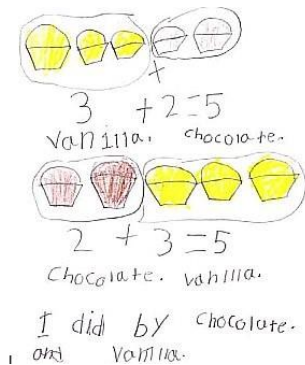 +
3 + 2 = 5
vanilla. chocolate.
2 + 3 = 5
Chocolate. vanilla.
I did by chocolate.
and vanilla.